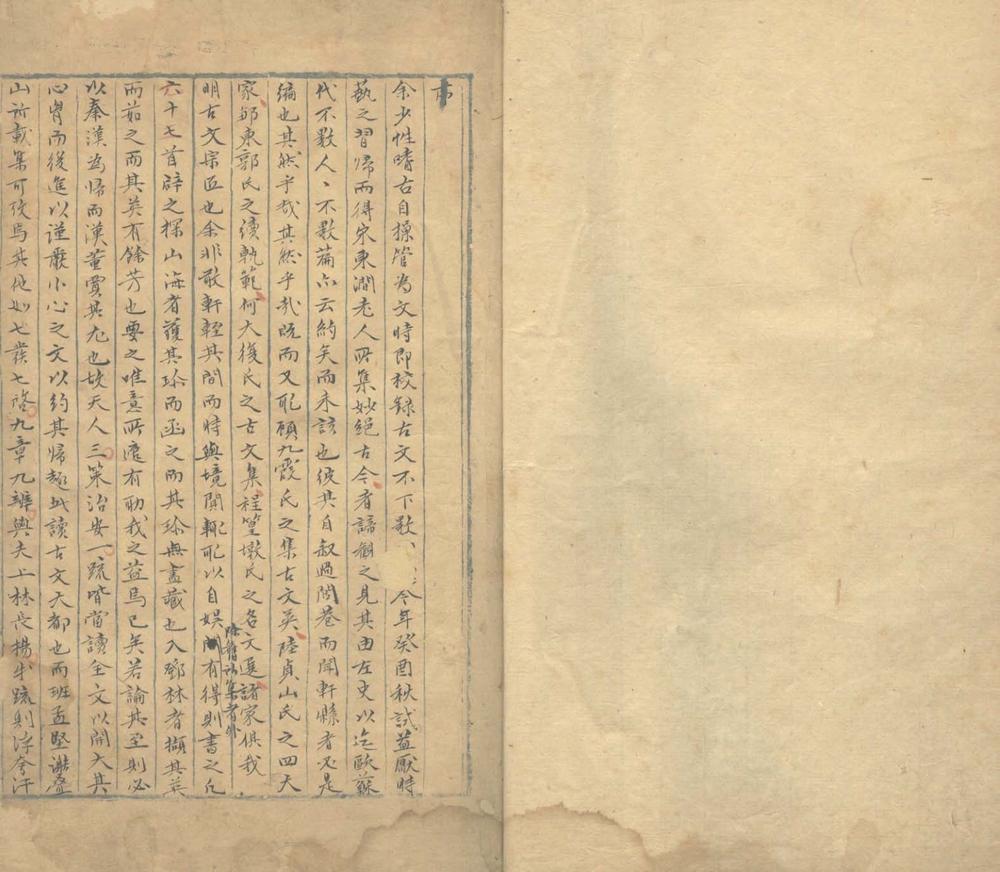 余少性嗜古自操管為文時即校錄古文不下數今年癸酉秋試益厭時
藝之習帰而得宋東澗老人所集妙絕古今者諦觀之見其由左史以迄歐蘇
代不数人、不数篇亦云約矣而未該也彼其自叙過閭巷而聞軒縣者又是
編也其然乎哉其然乎哉既而又取顧九霞氏之集古文英陸貞山氏之四大
家鄒東郭氏之續軌範何大復氏之古文集程篁墩氏之名文選諸家俱我
明古文宗匠也余非敢軒輊其間而時與境閒輒取以自娛有得則書之凡
除舊以集者外
六十七首辟之探山海者獲其珍而函之而其珍無盡藏也入鄧林者擷其英
而茹之而其英有餘芳也要之唯意所適有助我之益焉已矣若論其至則必
以秦漢為帰而漢董賈其尤也故天人三策治安一疏皆當讀全文以開大其
心胷而後進以謹嚴小心之文以約其帰趣此讀古文大都也而班孟堅
山所載集可攷焉其他如七發七啓九章九辨與夫上林長揚或疏則浮夸汗